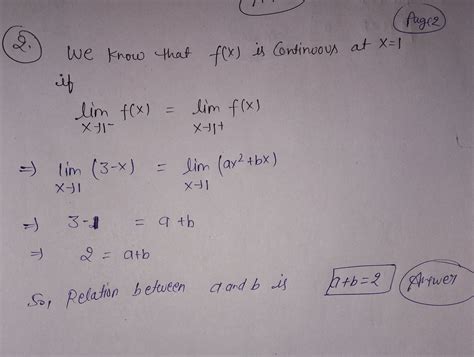 Page 2
2. We know that f(x) is Continuous at x=1
if
lim f(x) = lim f(x)
x→1- x→1+
⇒ lim (3-x) = lim (ax²+bx)
x→1 x→1
⇒ 3-1 = a+b
⇒ 2 = a+b
So, Relation between a and b is a+b=2 Answer